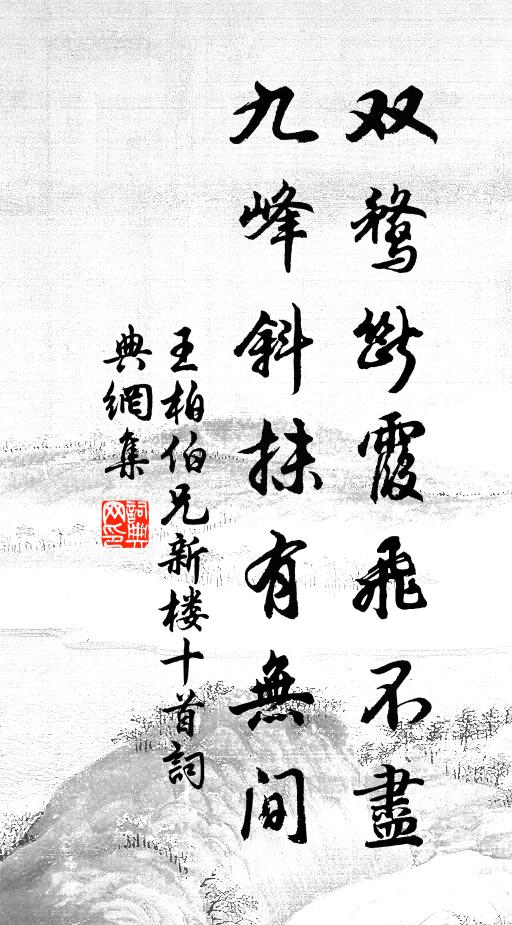 双鶩斷霞飛不盡
九峰斜抹有無间
王柏伯兄新楼十首詞
典網集
詞典网印